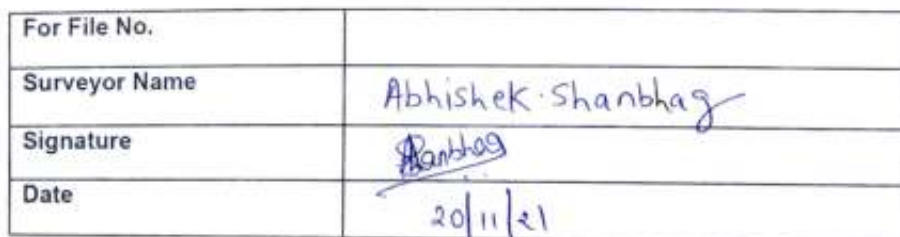 For File No.
Surveyor Name Abhishek Shanbhag
Signature Shanbhag
Date 20/11/21